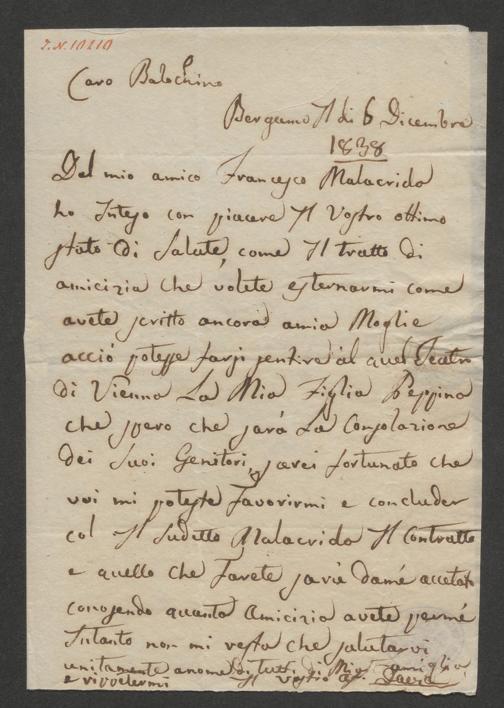 I.N. 10210
Caro Balochino
Bergamo Il di 6 Dicembre
1838
Del mio amico Francesco Malacrido
ho Inteso con piacere Il Vostro ottimo
stato di Salute, come Il tratto di
amicizia che volete esternarmi come
avete scritto ancora amia Moglie
acciò potesse farsi sentire al quel Teatro
di Vienna La Mia Figlia Peppina
che spero che sarà La Consolazione
dei Suoi Genitori, sarei fortunato che
voi mi poteste Favorirmi e concluder
col Il Sudetto Malacrido Il Contratto
e quello che Farete sarà damé accetato
conosendo quanta Amicizia avete permé
Intanto non mi resta che salutarvi
unitamente anome di tutti di Mia Famiglia
e rippetermi Il Vostro af.